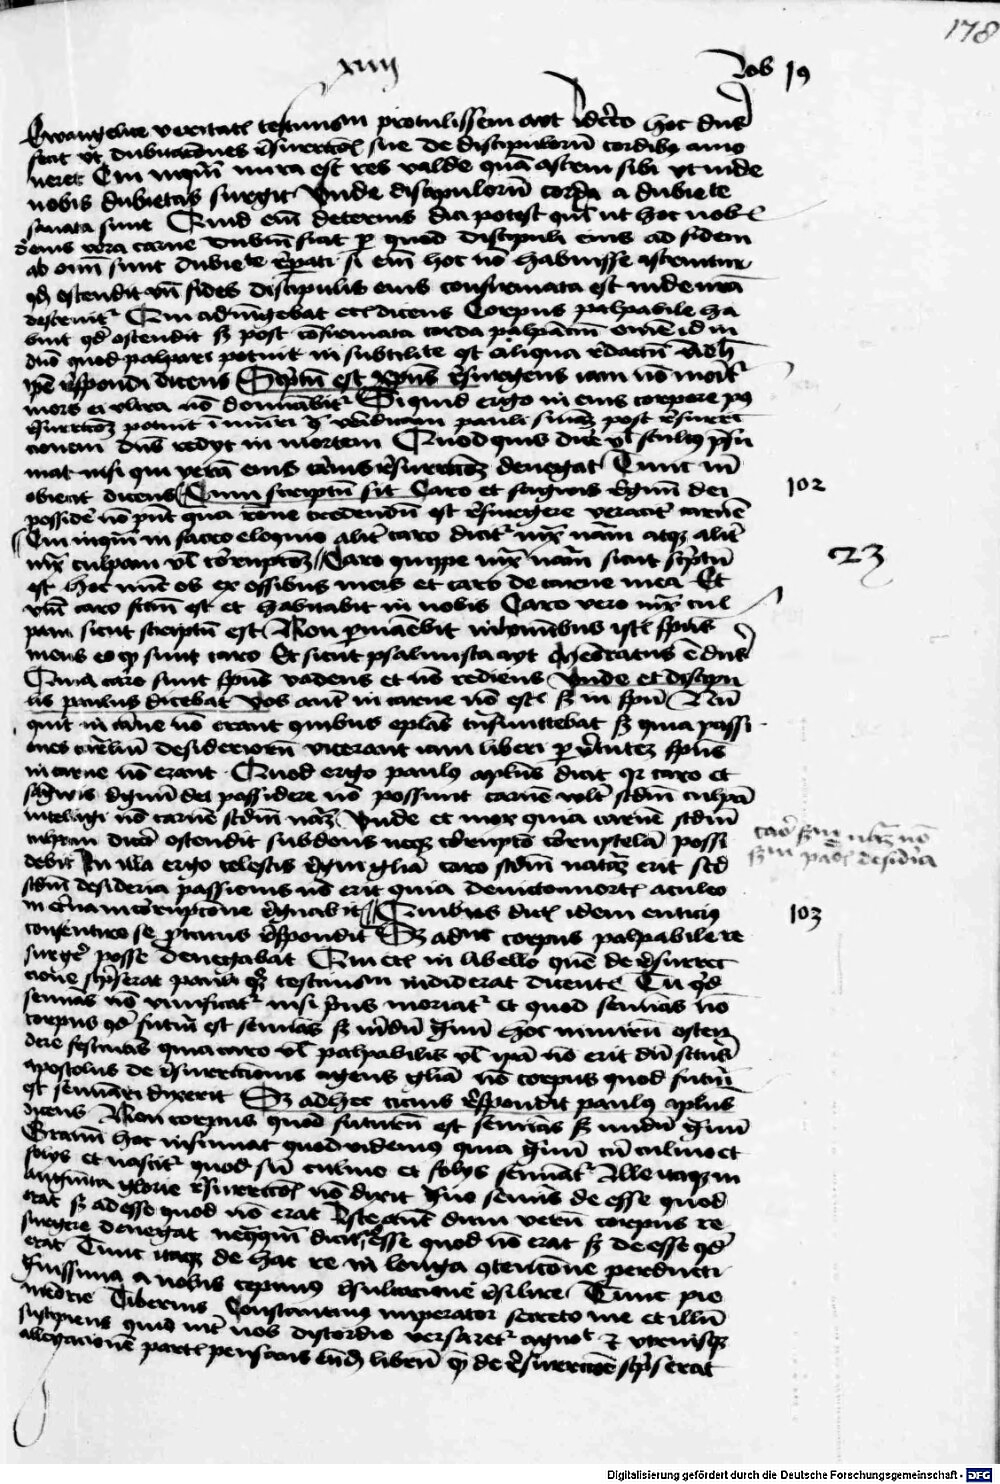 178
xiiij
Job 19
Ewangelice veritatis testimonium protulissem ayt idcirco hoc dns
fecit vt dubitaciones resurrectionis sue de discipulorum cordibus amo
ueret Cui inquam mira est res valde quam astruis sibi vt inde
nobis dubietas surgat Unde discipulorum corda a dubietate
sanata sunt Quid enim deterius dici potest quam ut hoc nobis
de eius vera carne dubium fiat per quod discipuli eius ad fidem
ab omni sunt dubietate reparati si enim hoc non habuisse astruitur
quod ostendit unde fides discipulis eius confirmata est inde nostra
destruitur Qui adiungebat etiam dicens Corpus palpabile ha
buit quod ostendit sed post confirmata corda palpancium omne id in
domino quod palpari potuit in subtilitate est aliqua redactum Ad hec
ipse respondi dicens Scriptum est Christus resurgens iam non moritur
mors ei ultra non dominabitur Si quid ergo in eius corpore post
resurrectionem potuit immutari contra veridicam pauli sententiam post resurre
ctionem dominus redyt in mortem Quod quis dicere vel stultus presu
mat nisi qui veram eius carnis resurrectionem denegat Tunc michi
obiecit dicens Cum scriptum sit Caro et sanguis regnum dei
possidere non possunt qua racione credendum est resurgere veraciter carnem
Cui inquam in sacro eloquio aliter caro dicitur iuxta naturam atque aliter
iuxta culpam vel corrupcionem Caro quippe iuxta naturam sicut scriptum
est hoc nunc os ex ossibus meis et caro de carne mea Et
verbum caro factum est et habitabit in nobis Caro vero iuxta cul
pam sicut scriptum est Non permanebit in hominibus istis spiritus
meus eo quod sunt caro Et sicut psalmista ayt Memoratus est dns
Quia caro sunt spiritus vadens et non rediens Unde et discipu
lis paulus dicebat Vos autem in carne non estis sed in spiritu Nun
quid in carne non erant quibus epistolas transmittebat sed quia passi
ones carnalium desideriorum vicerant iam liberi per virtutem spiritus
in carne non erant Quod ergo paulus apostolus dicit quia caro et
sanguis regnum dei possidere non possunt carnem vult secundum culpam
intelligi non carnem secundum naturam Unde et mox quia carnem secundum
culpam diceret ostendit subdens neque corrupcio corruptelam possi
debit In illa ergo celestis regni gloria caro secundum naturam erit sed
secundum desideria passionis non erit quia devicto mortis aculeo
in eterna incorrupcione regnabit Quibus dictis idem euticius
consentire se protinus respondit Sed adhuc corpus palpabile re
surgere posse denegabat Qui etiam in libello quem de resurrec
cione scripserat pauli quoque testimonium indiderat dicentis Tu quod
seminas non vivificatur nisi prius moriatur et quod seminas non
corpus quod futurum est seminas sed nudum granum Hoc nimirum osten
dere festinans quia caro vel palpabilis vel ipsa non erit dum sanctus
apostolus de resurrectionis agens gloria non corpus quod futurum
est seminari dixerit Sed ad hec cicius respondit paulus apostolus
dicens Non corpus quod futurum est seminas sed nudum granum
Granum hoc insinuat quod videmus quia granum cum culmo et
folys et nascitur quod sine culmo et folys seminatur Ille itaque in
augmentum glorie resurrectionis non dixit grano seminis deesse quod
erat sed adesse quod non erat Iste autem dum verum corpus re
surgere denegat nequaquam dicit esse quod non erat sed deesse quod
erat Tunc itaque de hac re in longa contencione perducti
gravissima a nobis cepimus resultacione resilire Tunc pie
memorie Tiberius Constantinus imperator secreto me et illum
suscipiens quid inter nos discordie versaretur agnovit et utriusque
allegacionem partis pensans eundem librum quem de resurrectione scripserat
102
23
103
Digitalisierung gefördert durch die Deutsche Forschungsgemeinschaft - DFG